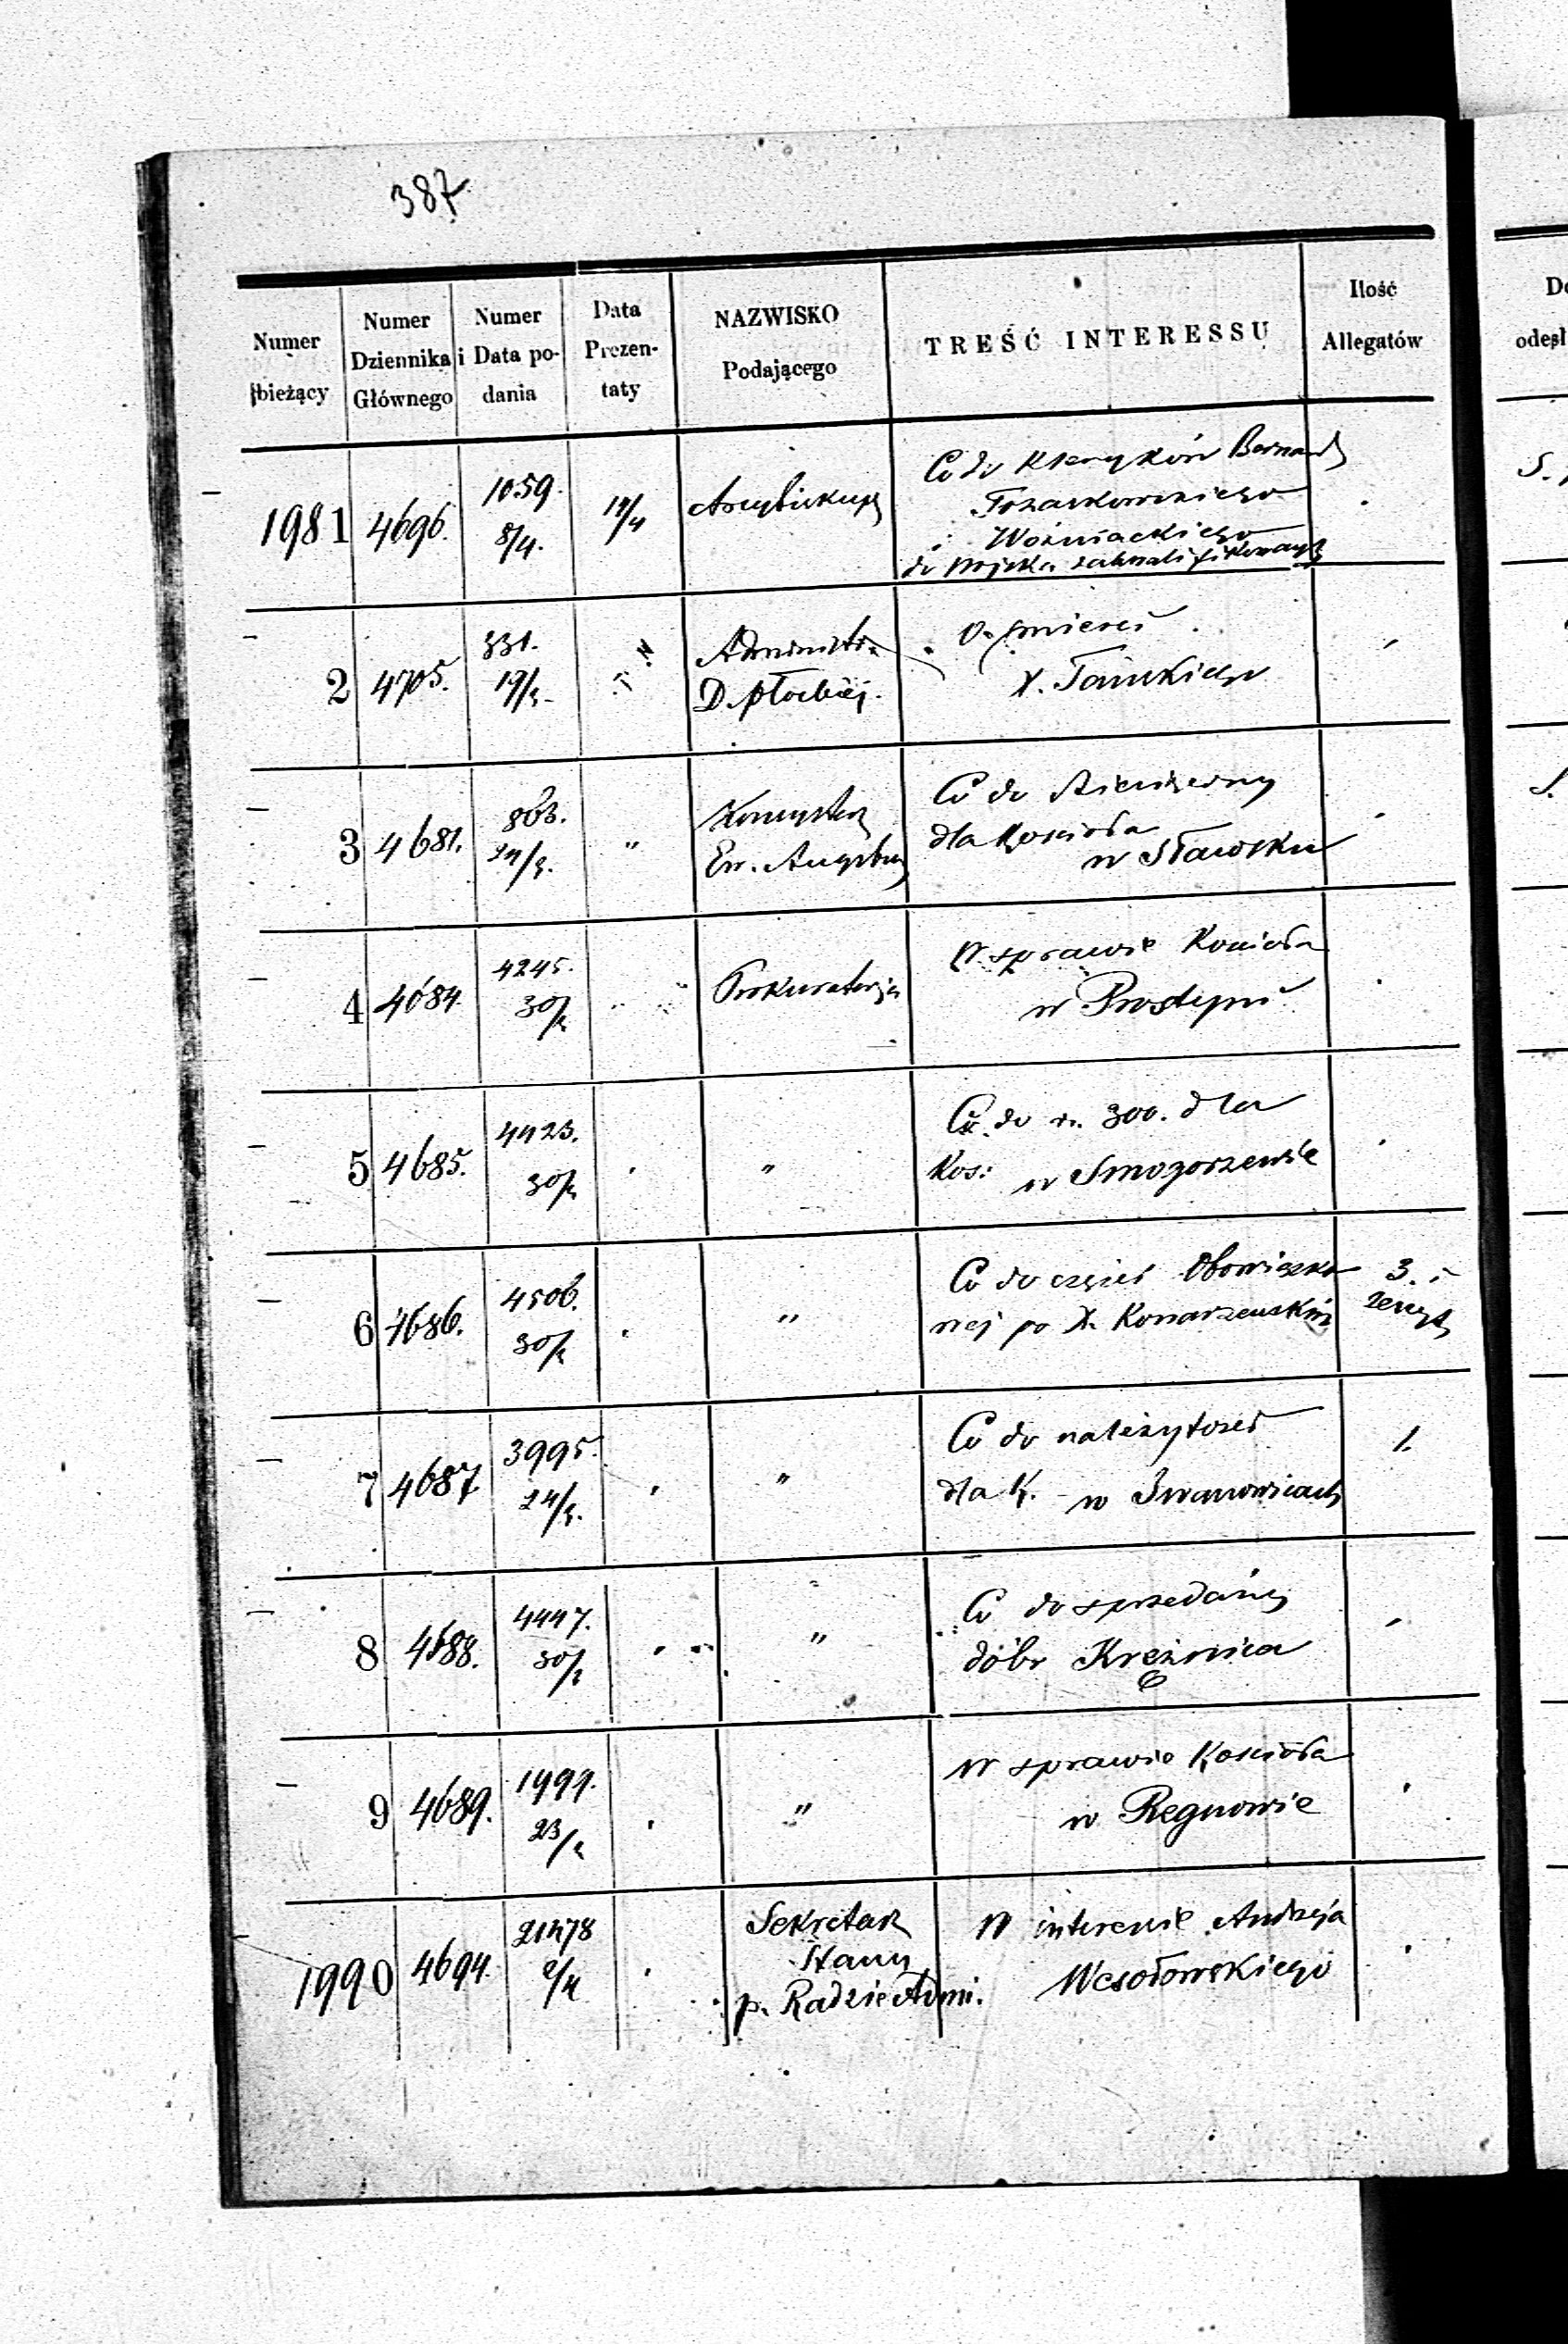 387
Numer bieżący
Numer Dziennika Głównego
Numer i Data podania
Data Prezentaty
NAZWISKO Podającego
TREŚĆ INTERESSU
Ilość Allegatów
1981 4696. 1059. 8/4. 14/4 Arcybiskup
Co do Kleryków Bernard
Wożniackiego
do Wojska zakwalifikowanych
2 4705. 331. 19/3. Administr.
D. płockiej.
O śmierci
X. Tańskiego
3 4681. 863. 24/3. " Konsystorz
Ew. Augsbur
Co do
dla Kościoła
w Sławsku
4 4684. 4245. 30/3 Prokuratorja
W sprawie Kościoła
w Prostyni
5 4685. 4423. 30/3 "
Co do r. 300. dla
Kos: w Smogorzewie
6 4686. 4506. 30/3 "
Co do części Obowiązko
wej po X. Konarzewskim
3. i
zeszyt
7 4687 3995. 24/3. "
Co do należytości
dla K. w Iwanowicach
1.
8 4688. 4447. 30/3 "
Co do sprzedaży
dóbr Krężnica
9 4689. 1499. 23/3 "
W sprawie Kościoła
w Regnowie
1990 4694. 21478 2/4 Sekretarz
Stanu
p. Radzie Admi.
W interesie Andrzeja
Wesołowskiego
D
odesł
S.
S.